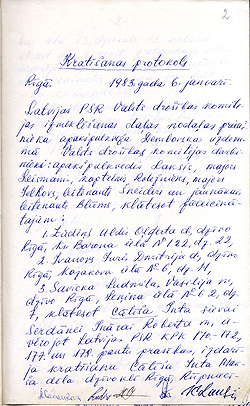 2
Kratīšanas protokols
Rīgā, 1983. gada 6. janvārī.
Latvijas PSR Valsts drošības komite-
jas izmeklēšanas daļas nodaļas priekš-
nieka apakšpulkveža Dembovska uzdevu-
mā Valsts drošības komitejas darbi-
nieki: apakšpulkvedis Lancis, majors
Leismanis, kapteinis majors
leitenants Sneiders un jaunākais
leitenants Blūms, klātesot pieaicinā-
tajiem:
1. Zirdiņš Uldis Oļģerta d., dzīvo
Rīgā, Kr. Barona ielā Nº 122, dz. 22,
2. Ivanovs Juris Dmitrija d., dzīvo
Rīgā, ielā Nº 6, dz. 11,
3. Savicka Ludmila, Vasilija m.,
dzīvo Rīgā, Ļeņina ielā Nº 62, dz.
7, klātesot Cālīša Inta sievai
Serdānei Inārai Roberta m., ie-
vērojot Latvijas PSR KPK 170.-172.,
177. un 178. pantu prasības, izdarī-
ja kratīšanu Cālīša Inta Mak-
dēla dzīvoklī Rīgā,